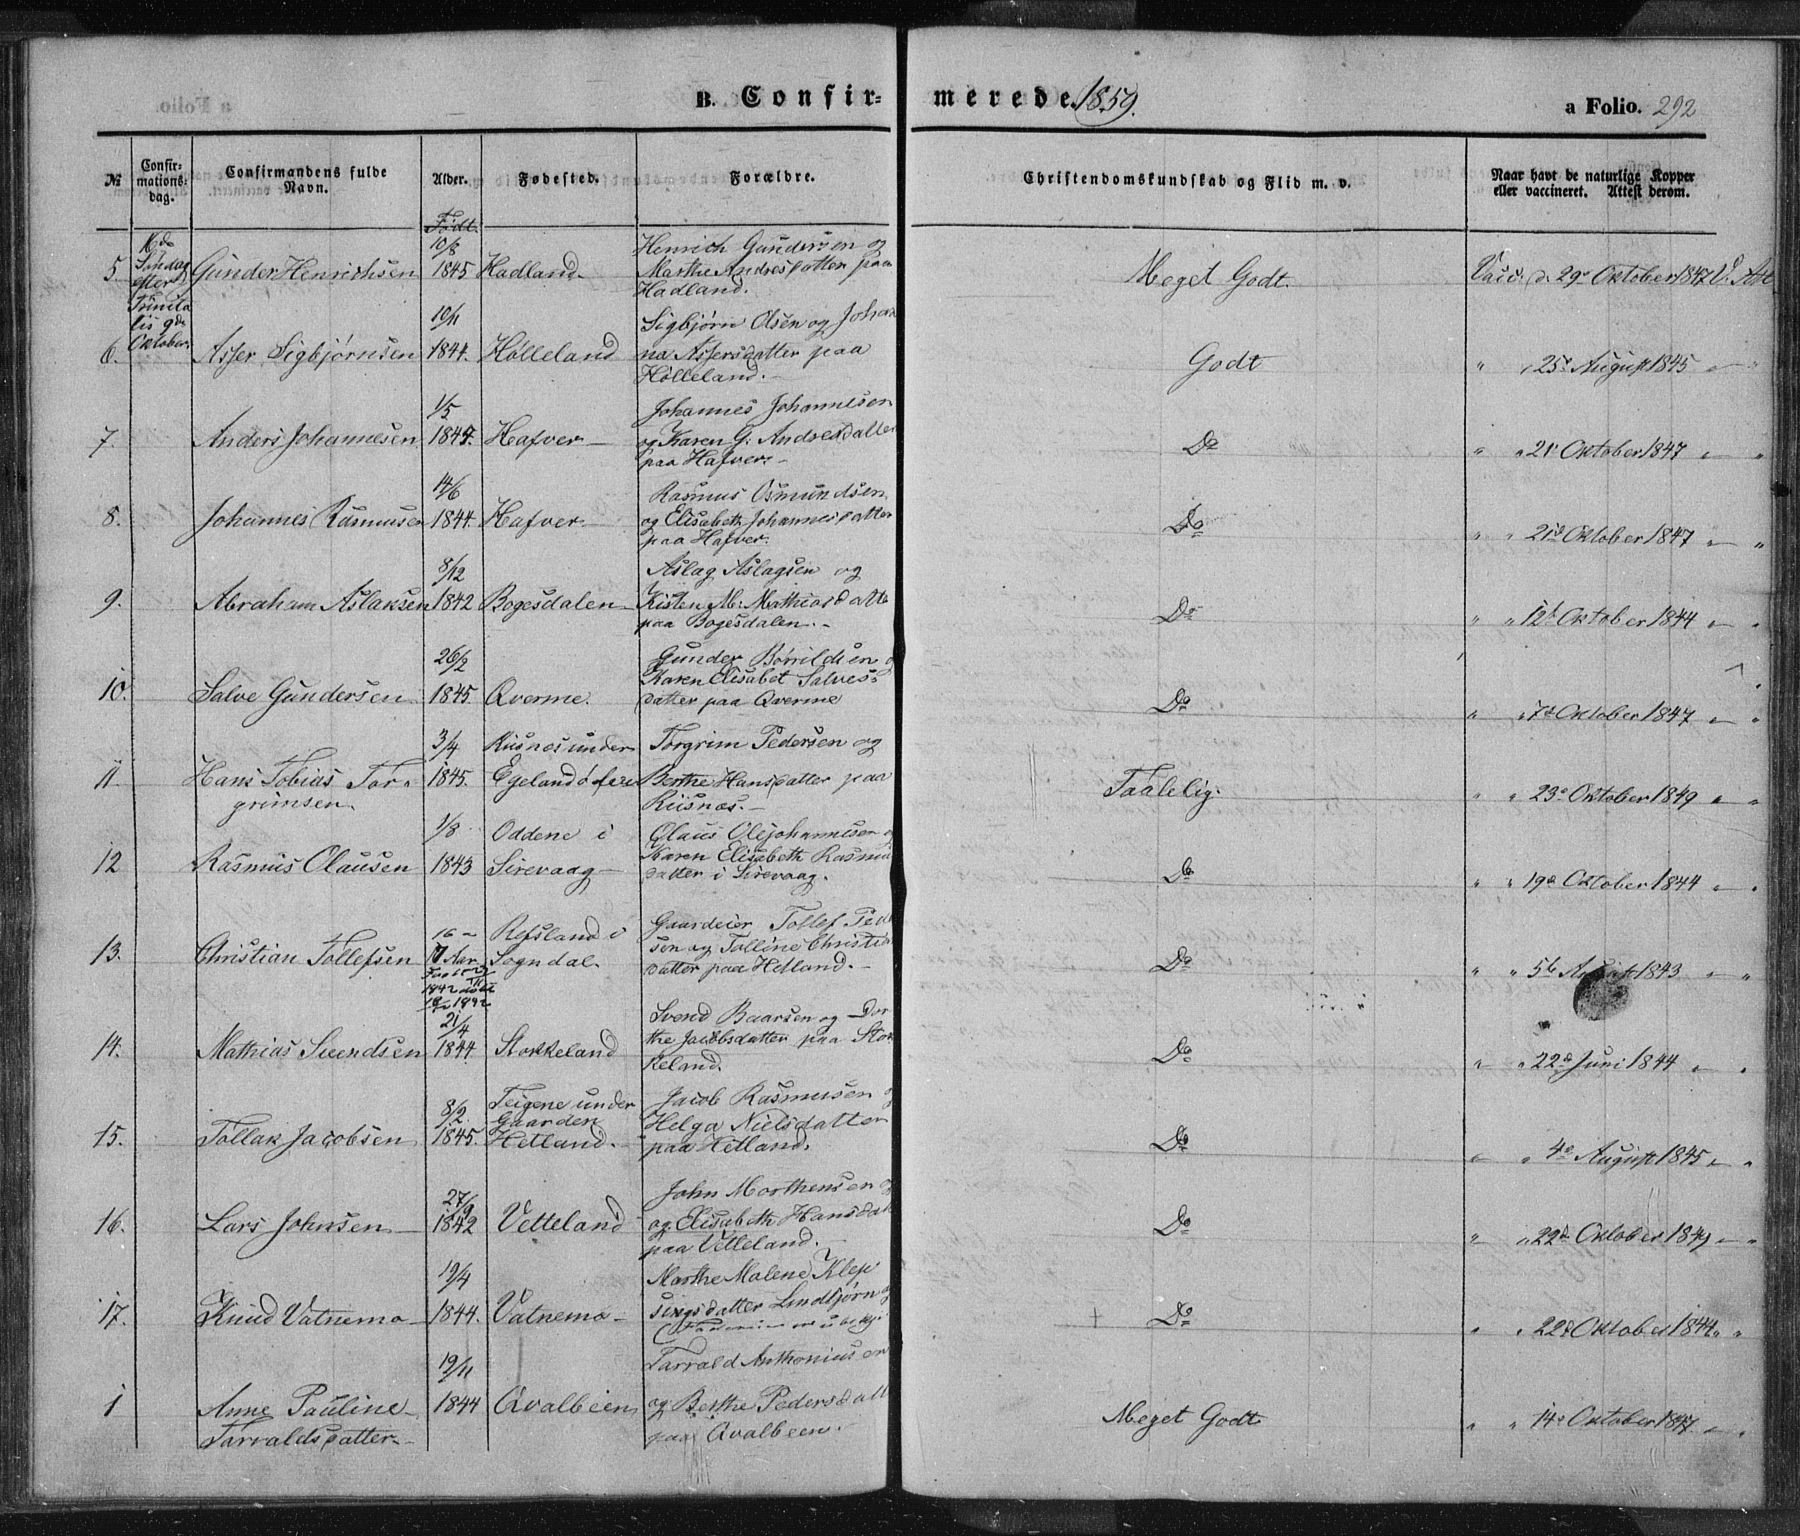 B. Confirmerede 1859.
a Folio. 292
№
Confirmationsdag.
Confirmandens fulde Navn.
Alder.
Fødested.
Forældre.
Christendomskundskab og Flid m. v.
Naar havt de naturlige Kopper eller vaccineret. Attest derom.
Født
16de Søndag efter Trinitatis 9de Oktober.
5. Gunder Henrichsen 10/8 1845 Hadland.
Henrich Gundersen og
Marthe Andresdatter paa
Hadland.
Meget Godt. Vacc. d. 29de Oktober 1847 V. Att
6. Asser Sigbjørnsen 10/11 1844. Hølleland
Sigbjørn Olsen og Johan
na Assersdatter paa
Hølleland.
Godt " " 25de August 1845 " "
7. Anders Johannesen 1/5 1844. Hafver
Johannes Johannesen
og Karen G: Andresdatter
paa Hafver.
Do " " 21de Oktober 1847 " "
8. Johannes Rasmusen 14/6 1844. Hafver
Rasmus Osmundsen
og Elisabeth Johannesdatter
paa Hafver.
Do " " 21de Oktober 1847 " "
9. Abraham Aslaksen 8/12 1842 Bogesdalen
Aslag Aslagsen og
Kisten M: Mathiasdatte
paa Bogesdalen.
Do " " 12te Oktober 1844 " "
10. Salve Gundersen 26/2 1845 Qverme.
Gunder Børrildsen o
Karen Elisabet Salves-
datter paa Qverme
Do " " 7de Oktober 1847 " "
11. Hans Tobias Tor-
grimsen. 3/4 1845. Riisnes under
Egeland
Torgrim Pedersen og
Berthe Hansdatter paa
Riisnæs.
Taalelig. " " 23de Oktober 1849 " "
12 Rasmus Olausen 1/8 1843 Oddene i
Sirevaag
Olaus Olejohannesen o
Karen Elisabeth Rasmu
datter i Sirevaag.
Do " " 19de Oktober 1844 " "
13. Christian Tollefsen 16
Aar 1842 Refsland i
Sogndal.
Gaardeier Tollef Ped
sen og Talline Christia
datter paa Hetland.
Do " " 5te August 1843 " "
14. Mathias Svendsen 21/4 1844. Stokkeland
Svend Baarsen og Dor
the Jacobsdatter paa Stok
keland.
Do " " 22de Juni 1844 " "
15. Tollak Jacobsen 8/2 1845. Teigene under
Gaarden
Hetland.
Jacob Rasmusen o
Helga Nielsdatter
paa Hetland.
Do " " 4de August 1845 " "
16. Lars Johnsen 27/9 1842 Vetteland
John Morthensen o
og Elisabeth Hansdat
paa Vetteland.
Do " " 22de Oktober 1849 " "
17. Knud Vatnemo 19/4 1844. Vatnemo
Marthe Malene Klep
singsdatter Lindbjørn o
+ Do " " 22de Oktober 1844 " "
1 Anne Pauline
Tarraldsdatter 19/11 1844 Qvalbeen
Tarrald Anthoniusen
og Berthe Pedersdatt
paa Qvalbeen.
Meget Godt " " 14de Oktober 1847 " "